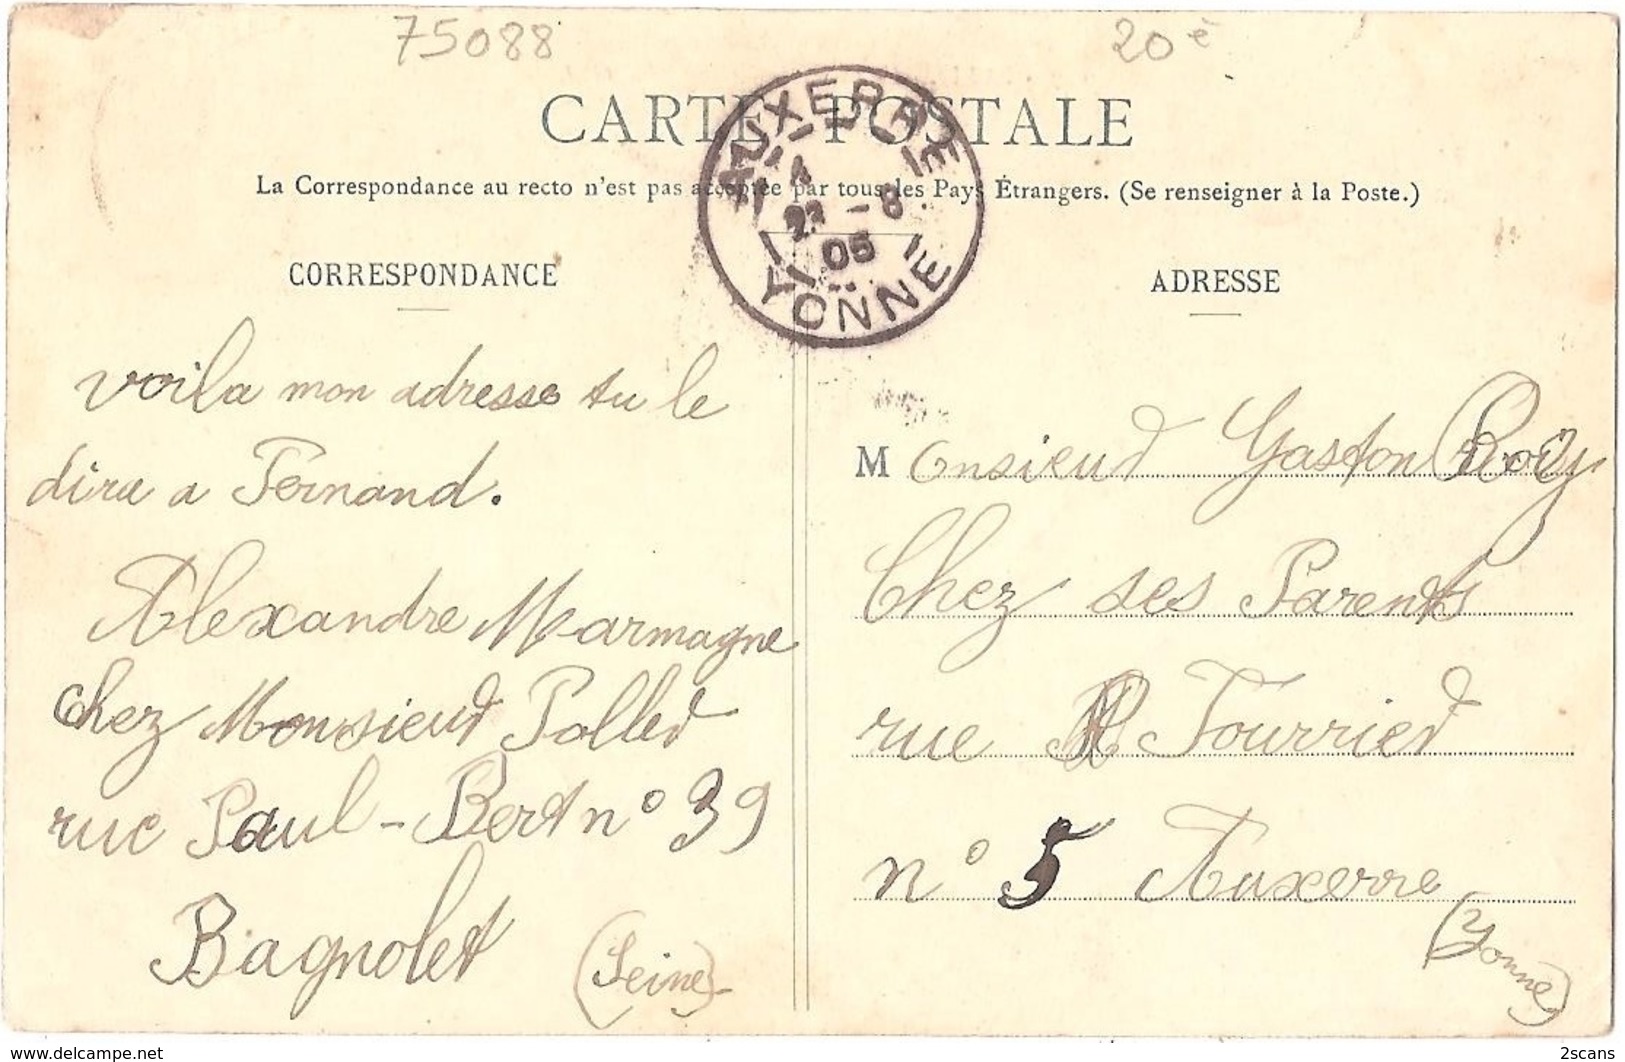 75088
20è
CARTE POSTALE
La Correspondance au recto n'est pas acceptée par tous les Pays Étrangers. (Se renseigner à la Poste.)
AUXERRE
22 - 8
05
YONNE
CORRESPONDANCE
voila mon adresse tu le
dira a Fernand.
Alexandre Marmagne
chez Monsieur Poller
rue Paul-Bert n° 39
Bagnolet (Seine)
ADRESSE
Monsieur Gaston Roy
Chez ses Parents
rue Fourrier
n° 5 Auxerre
(Yonne)
www.delcampe.net
2scans